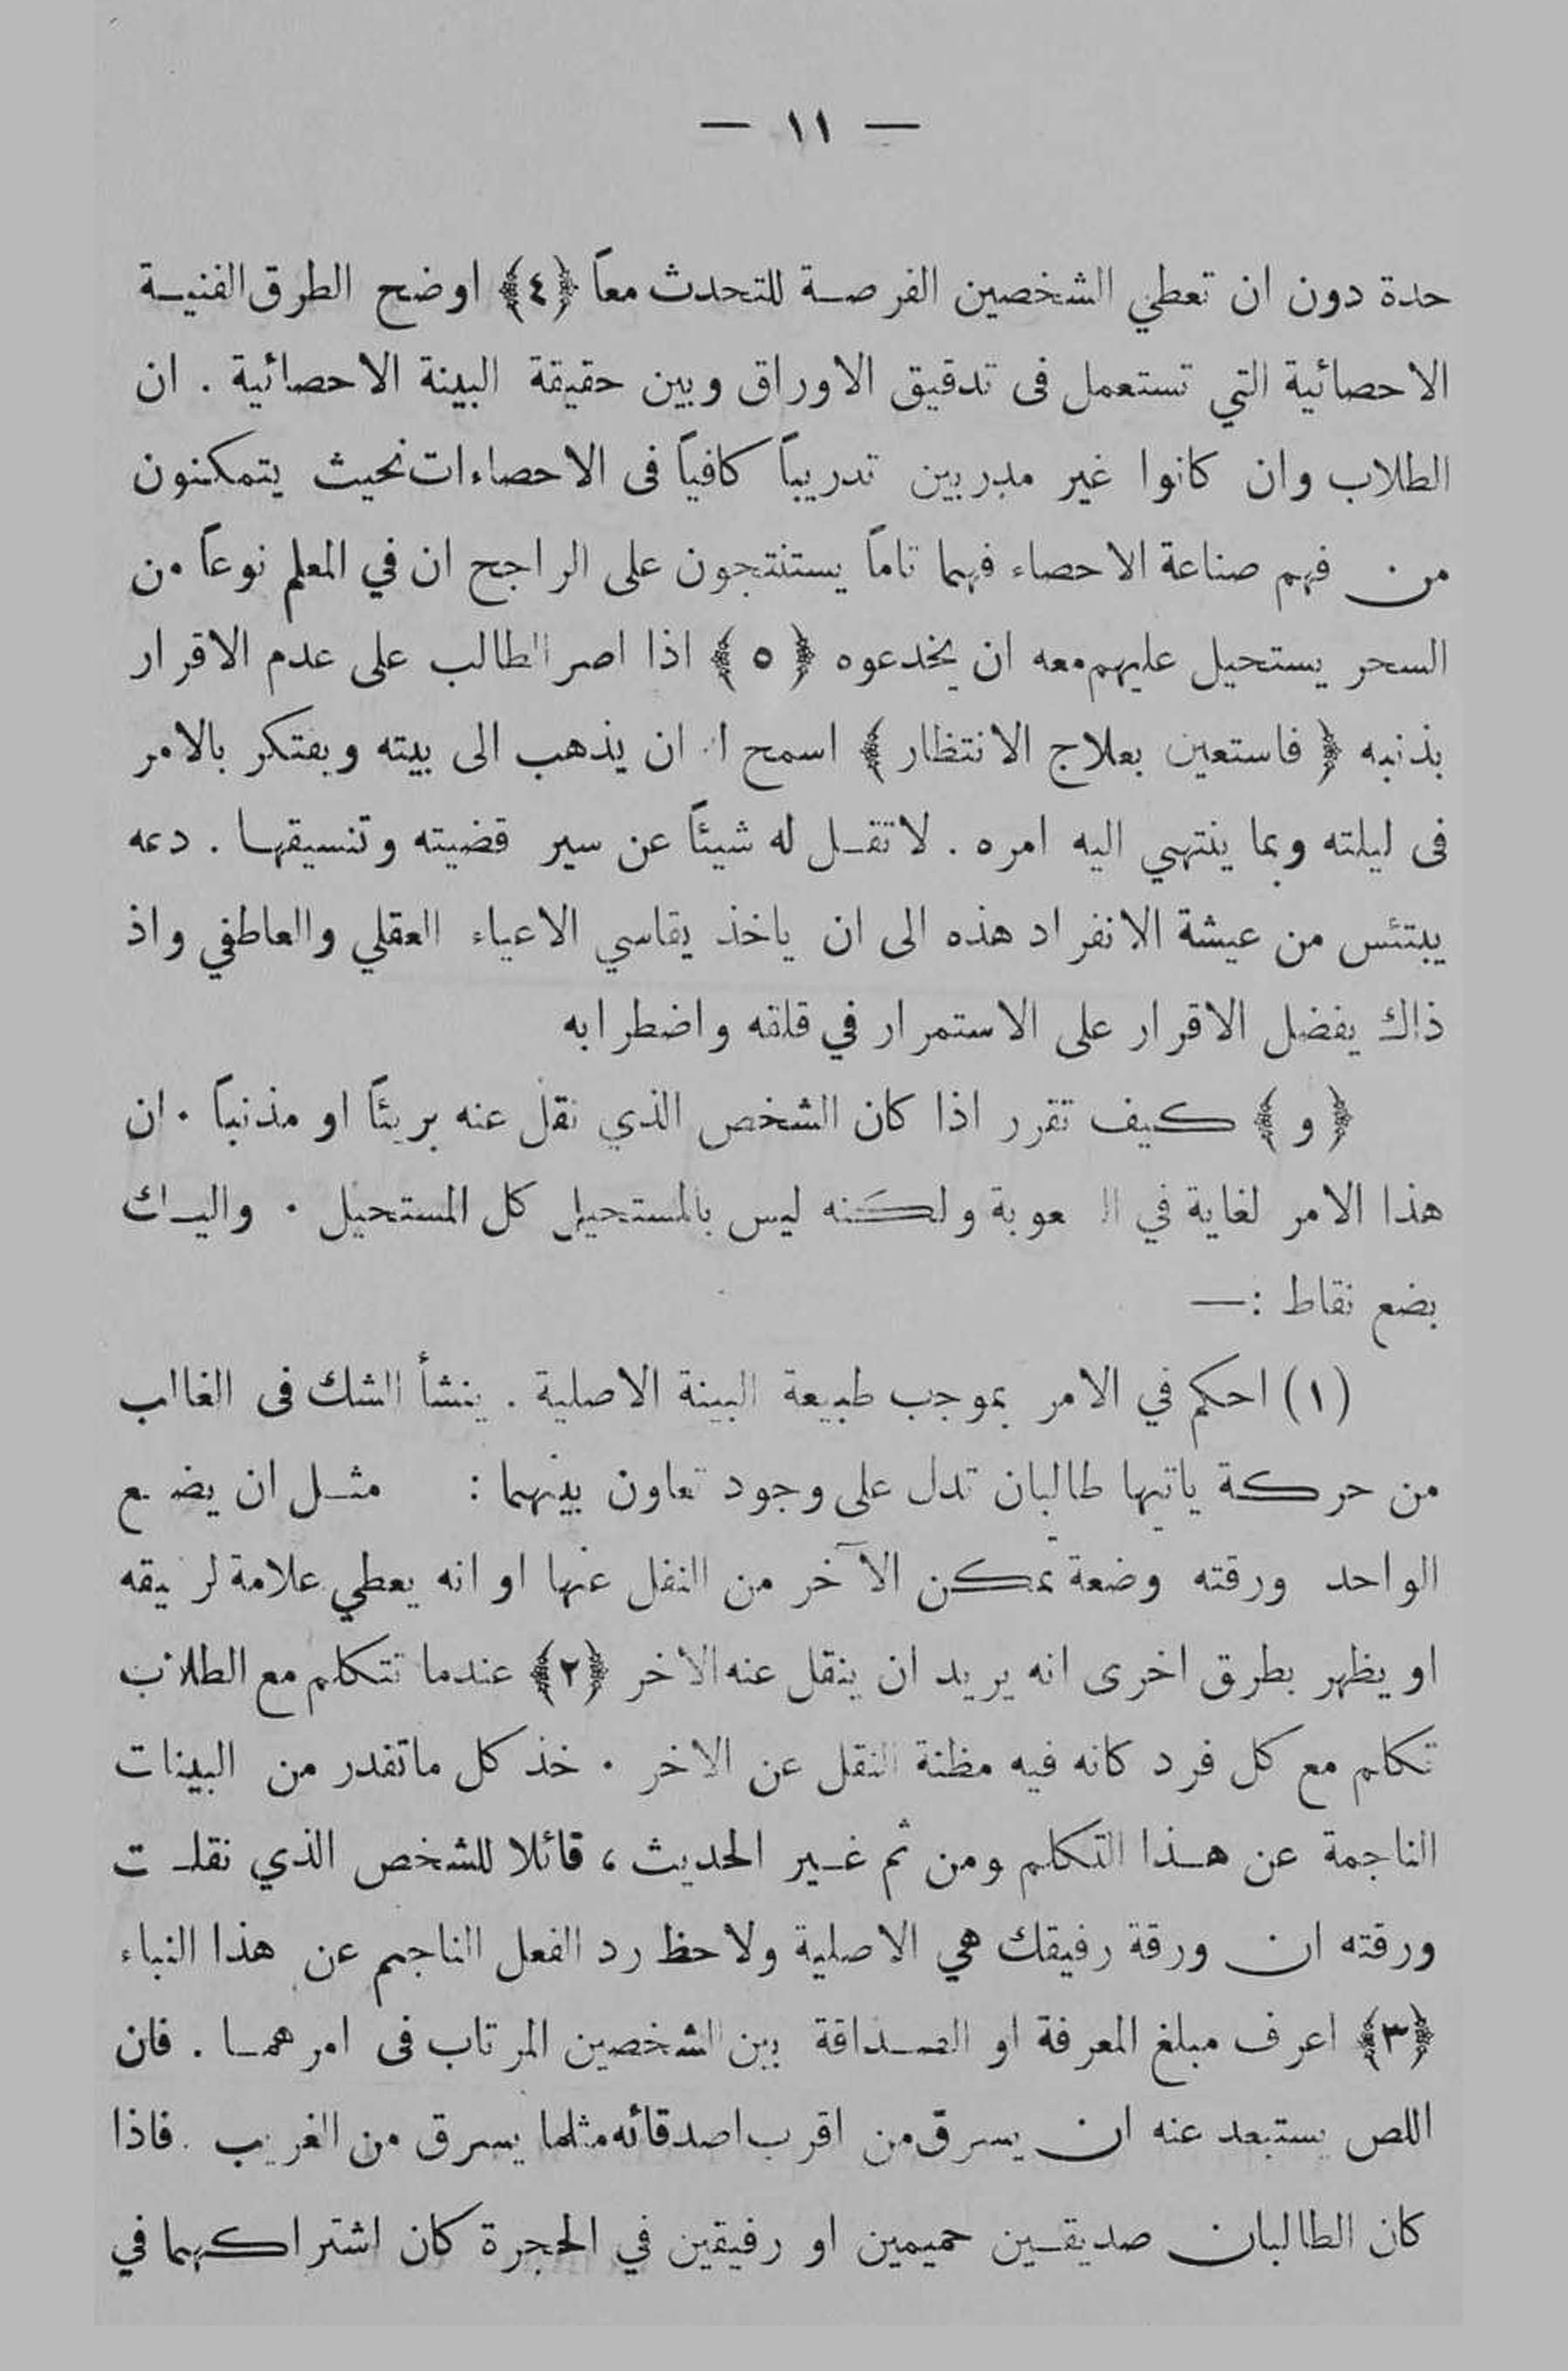 — ١١ —
حدة دون ان تعطي الشخصين الفرصة للتحدث معاً ﴿٤﴾ اوضح الطرق الفنية
الاحصائية التي تستعمل فى تدقيق الاوراق وبين حقيقة البينة الاحصائية . ان
الطلاب وان كانوا غير مدربين تدريباً كافياً فى الاحصاءات بحيث يتمكنون
من فهم صناعة الاحصاء فهما تاماً يستنتجون على الراجح ان في المعلم نوعاً من
السحر يستحيل عليهم معه ان يخدعوه ﴿ ٥ ﴾ اذا اصر الطالب على عدم الاقرار
بذنبه ﴿ فاستعين بعلاج الانتظار ﴾ اسمح ان يذهب الى بيته ويفتكر بالامر
فى ليلته وبما ينتهي اليه امره . لا تقل له شيئاً عن سير قضيته وتنسيقها . دعه
يبتئس من عيشة الانفراد هذه الى ان ياخذ يقاسي الاعياء العقلي والعاطفي واذ
ذاك يفضل الاقرار على الاستمرار في قلقه واضطرابه
﴿ و ﴾ كيف تقرر اذا كان الشخص الذي نقل عنه بريئاً او مذنباً . ان
هذا الامر لغاية في ال عوبة ولكنه ليس بالمستحيل كل المستحيل . واليك
بضع نقاط :—
(١) احكم في الامر بموجب طبيعة البينة الاصلية . ينشأ الشك فى الغالب
من حركة ياتيها طالبان تدل على وجود تعاون بينهما : مثل ان يضع
الواحد ورقته وضعة تمكن الآخر من النقل عنها او انه يعطي علامة لر يقه
او يظهر بطرق اخرى انه يريد ان ينقل عنه الاخر ﴿٢﴾ عندما تتكلم مع الطلاب
تكلم مع كل فرد كانه فيه مظنة النقل عن الاخر . خذ كل ما تقدر من البينات
الناجمة عن هذا التكلم ومن ثم غير الحديث ، قائلا للشخص الذي نقلت
ورقته ان ورقة رفيقك هي الاصلية ولاحظ رد الفعل الناجم عن هذا النباء
﴿٣﴾ اعرف مبلغ المعرفة او الصداقة بين الشخصين المرتاب فى امرهما . فان
اللص يستبعد عنه ان يسرق من اقرب اصدقائه مثلما يسرق من الغريب . فاذا
كان الطالبان صديقين حميمين او رفيقين في الحجرة كان اشتراكهما في